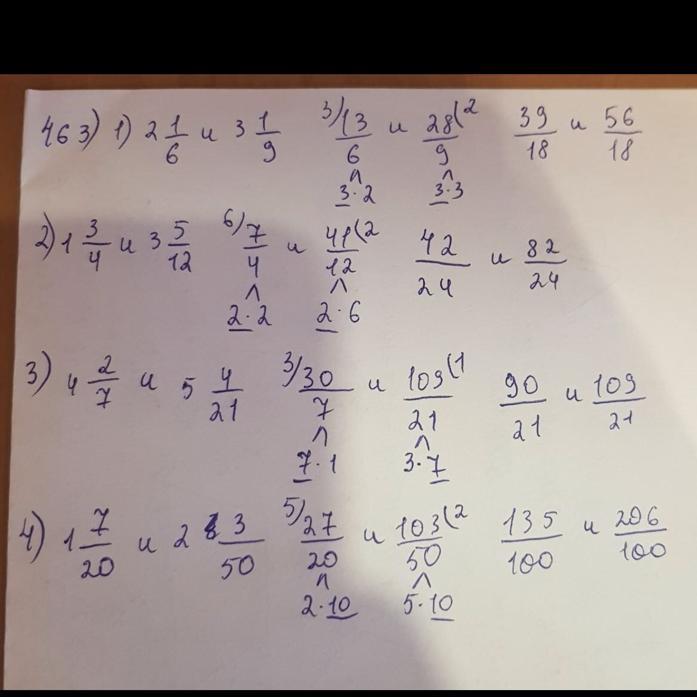 463) 1) 2 1/6 и 3 1/9 3) 13/6 и 28/9 (2 39/18 и 56/18
3·2 3·3
2) 1 3/4 и 3 5/12 6) 7/4 и 41/12 (2 42/24 и 82/24
2·2 2·6
3) 4 2/7 и 5 4/21 3) 30/7 и 109/21 (1 90/21 и 109/21
7·1 3·7
4) 1 7/20 и 2 3/50 5) 27/20 и 103/50 (2 135/100 и 206/100
2·10 5·10